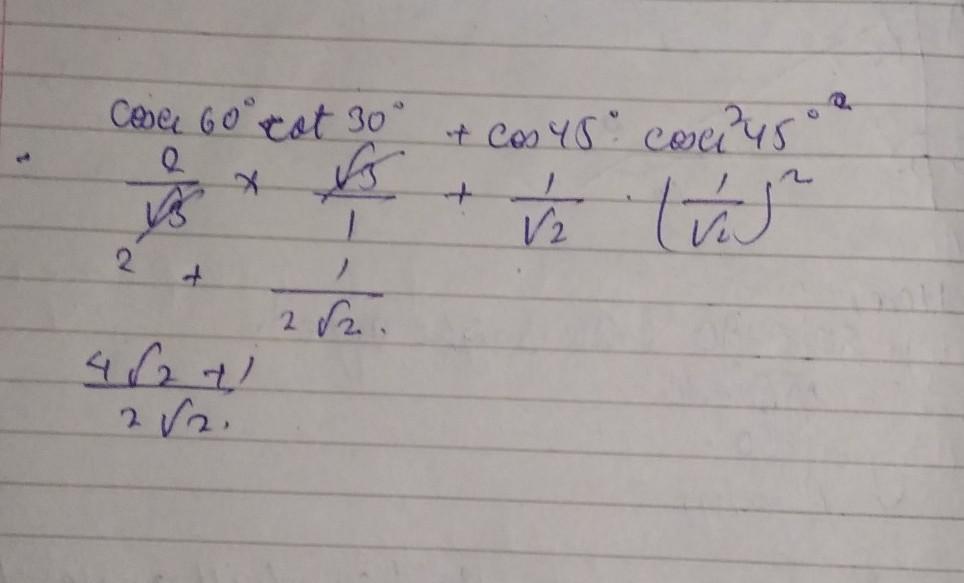 cosec 60° cot 30° + cos 45° cosec²45°
2/√3 × √3/1 + 1/√2 · (1/√2)²
2 + 1/2√2.
4√2+1/2√2.